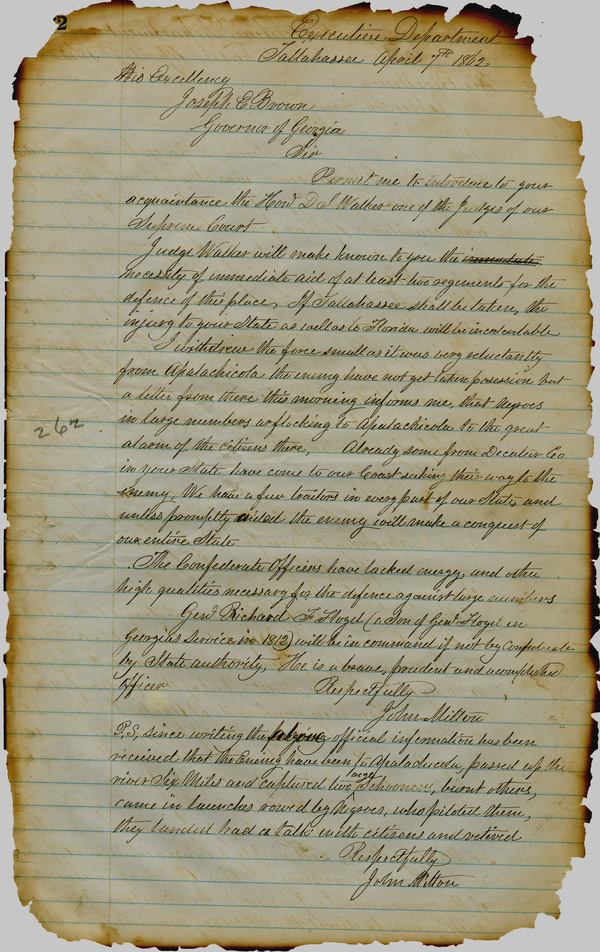 2
Executive Department
Tallahassee April 7th 1862
His Excellency
Joseph E. Brown
Governor of Georgia
Sir
Permit me to introduce to your
acquaintance the Hon D S Walker one of the Judges of our
Supreme Court
Judge Walker will make known to you the immediate
necessity of immediate aid of at least two regiments for the
defence of this place, If Tallahassee shall be taken, the
injury to your State as well as to Florida will be incalculable
I withdrew the force small as it was very reluctantly
from Apalachicola the enemy have not yet taken possession but
a letter from there this morning informs me, that negroes
in large numbers are flocking to Apalachicola to the great
262
alarm of the citizens there, Already some from Decatur Co
in your State have come to our Coast seeking their way to the
Enemy, We have a few traitors in every part of our State, and
unless promptly aided the enemy will make a conquest of
our entire State
The Confederate Officers have lacked energy, and other
high qualities necessary for the defence against large numbers
Genl Richard F Floyd (a Son of Genl Floyd in
Georgias Service in 1812) will be in command if not by Confederate
by State authority, He is a brave, prudent and accomplished
Officer Respectfully
John Milton
P,S, since writing the foregoing official information has been
received that the Enemy have been to Apalachicola, passed up the
river Six Miles and captured two large Schooners, burnt others,
came in launches rowed by Negroes, who piloted them,
they landed had a talk with citizens and retired
Respectfully
John Milton